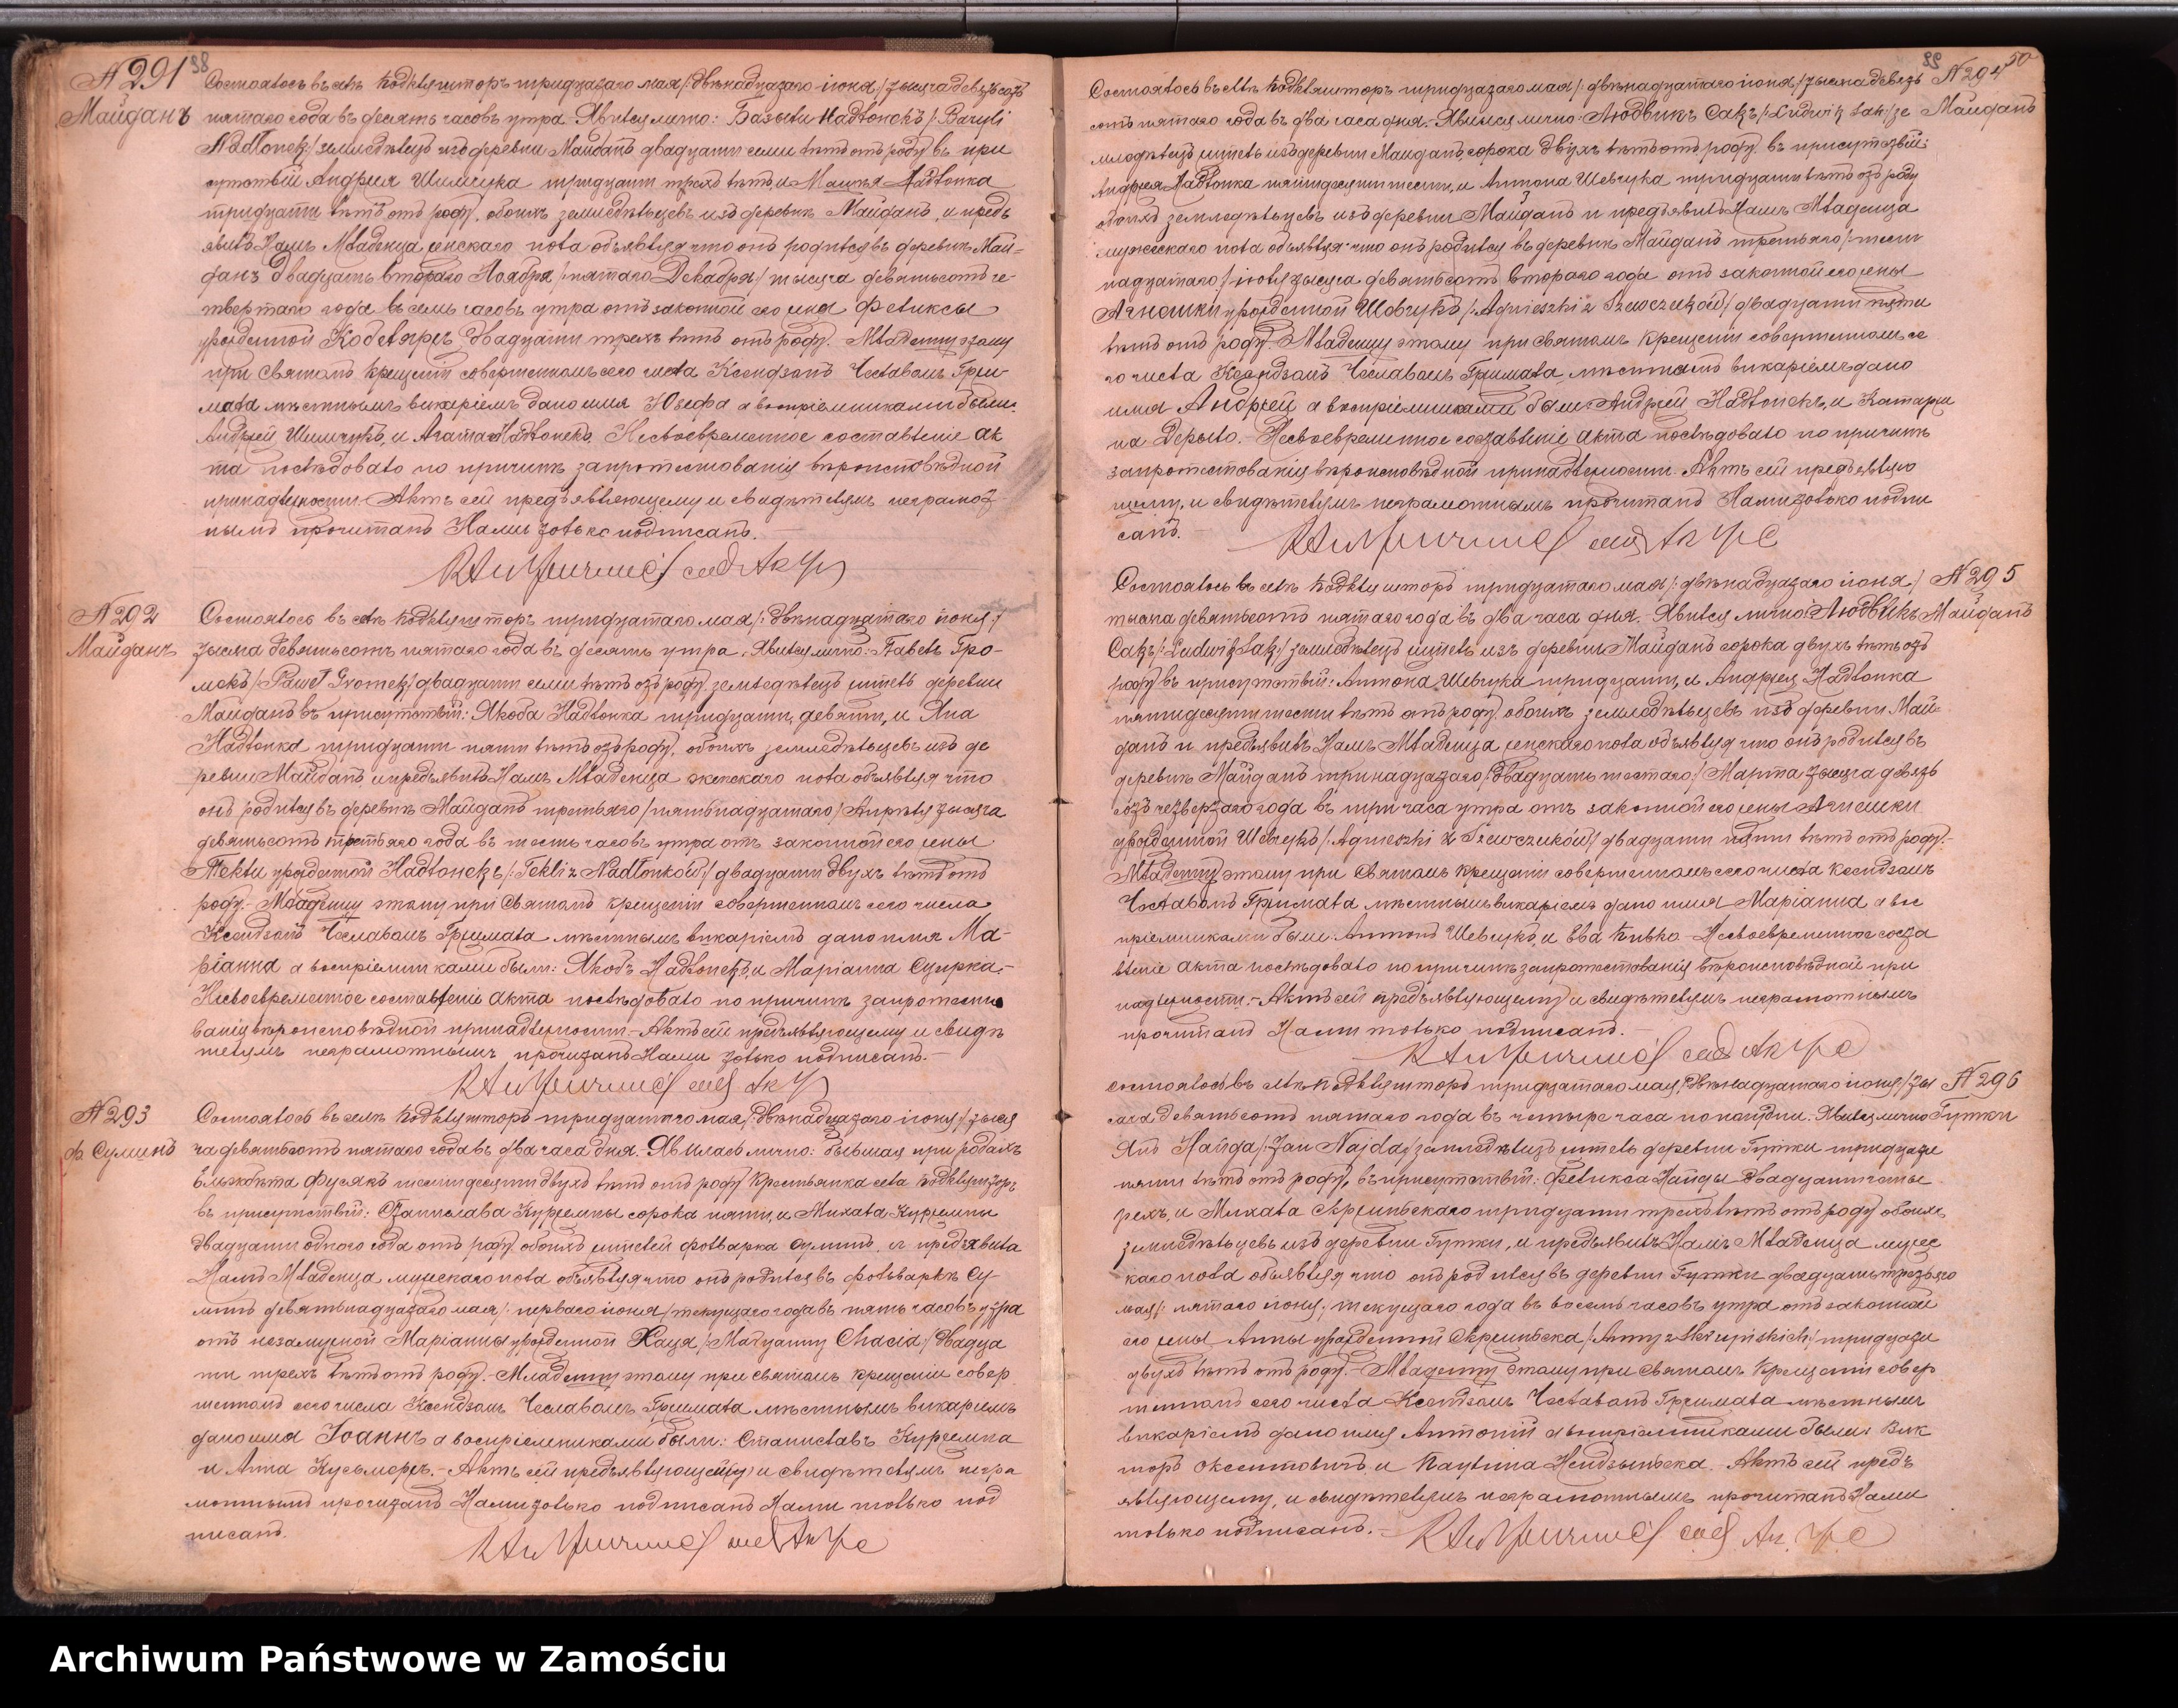 98
N 291
Майданъ
Состоялось въ селѣ Кодѣлушторъ тридцатаго мая /: двѣнадцатаго іюня :/ тысяча девятьсотъ
пятаго года въ десять часовъ утра. Явился лично: Базыли Надлонекъ /: Bazyli
Nadłonek :/ земледѣлецъ изъ деревни Майданъ двадцати семи лѣтъ отъ роду въ при
сутствіи Андрея Шимчука тридцати трехъ лѣтъ и Надлонка
тридцати лѣтъ отъ роду, обоихъ земледѣльцевъ изъ деревни Майданъ, и предъ
явилъ Намъ Младенца женскаго пола объявляя что онъ родился въ деревнѣ Май-
данъ двадцать втораго Ноября /: пятаго Декабря :/ тысяча девятьсотъ че-
твертаго года въ семь часовъ утра отъ законной его жены Феликсы
урожденной двадцати трехъ лѣтъ отъ роду. Младенцу этому
при Святомъ крещеніи совершенномъ сего числа Ксендзомъ Чеславомъ Гри-
мала мѣстнымъ викаріемъ дано имя Юзефа а воспріемниками были:
Андрей Шимчукъ, и Агата Надлонекъ. Несвоевременное составленіе Ак
та послѣдовало по причинѣ запротестованія вѣроисповѣдной
принадлежности. Актъ сей предъявляющему и свидѣтелямъ неграмот
нымъ прочитанъ Нами только подписанъ.
N 292
Майданъ
Состоялось въ селѣ тридцатаго мая /: двѣнадцатаго іюня :/
тысяча девятьсотъ пятаго года въ десять утра. Явился лично: Павелъ Гро-
мекъ /: Paweł Gromek :/ двадцати семи лѣтъ отъ роду земледѣлецъ житель деревни
Майданъ въ присутствіи: Якоба Надлонка тридцати девяти, и Яна
Надлонка тридцати пяти лѣтъ отъ роду, обоихъ земледѣльцевъ изъ де
ревни Майданъ, и предъявилъ Намъ Младенца женскаго пола объявляя что
онъ родился въ деревнѣ Майданъ третьяго /: пятьнадцатаго :/ Апрѣля тысяча
девятьсотъ третьяго года въ шесть часовъ утра отъ законной его жены
Теклы урожденной Надлонекъ /: Tekli z Nadłonków :/ двадцати двухъ лѣтъ отъ
роду. Младенцу этому при Святомъ крещеніи совершенномъ сего числа
Ксендзомъ Чеславомъ Гримала мѣстнымъ викаріемъ дано имя Ма-
ріанна а воспріемниками были: Якобъ Надлонекъ, и Маріанна
Несвоевременное составленіе Акта послѣдовало по причинѣ запротесто
ванія вѣроисповѣдной принадлежности. Актъ сей предъявляющему и свидѣ
телямъ неграмотнымъ прочитанъ Нами только подписанъ.
N 293
ф. Суминъ
Состоялось въ селѣ тридцатаго мая /: двѣнадцатаго іюня :/ тыся
ча девятьсотъ пятаго года въ два часа дня. Явилась лично: бывшая при родахъ
Фусякъ шестидесяти двухъ лѣтъ отъ роду крестьянка села
въ присутствіи: Станислава Куржемпы сорока пяти, и Михала Куржемпы
двадцати одного года отъ роду обоихъ жителей фольварка Суминъ, и предъявила
Намъ Младенца мужескаго пола объявляя что онъ родился въ фольваркѣ Су-
минъ девятьнадцатаго мая /: перваго іюня :/ текущаго года въ пять часовъ утра
отъ незамужной Маріанны урожденной Хаця /: Maryanny Chacia :/ двадца
ти трехъ лѣтъ отъ роду. Младенцу этому при Святомъ крещеніи совер
шенномъ сего числа Ксендзомъ Чеславомъ Гримала мѣстнымъ викаріемъ
дано имя Іоаннъ а воспріемниками были: Станиславъ Куржемпа
и Анна Актъ сей предъявляющей и свидѣтелямъ негра
мотнымъ прочитанъ Нами только подписанъ Нами только под
писанъ.
99
50
N 294
Майданъ
Состоялось въ селѣ тридцатаго мая /: двѣнадцатаго іюня :/ тысяча девять
сотъ пятаго года въ два часа дня. Явился лично: Людвикъ Сакъ /: Ludwik Sak :/ зе
мледѣлецъ житель изъ деревни Майданъ, сорока двухъ лѣтъ отъ роду въ присутствіи:
Андрея Надлонка пятидесяти шести, и Антона Шевчука тридцати лѣтъ отъ роду
обоихъ земледѣльцевъ изъ деревни Майданъ и предъявилъ Намъ Младенца
мужескаго пола объявляя что онъ родился въ деревнѣ Майданъ третьяго /: шест
надцатаго :/ іюля тысяча девятьсотъ втораго года отъ законной его жены
Агнешки урожденной Шевчукъ /: Agnieszki z Szewczuków :/ двадцати пяти
лѣтъ отъ роду. Младенцу этому при Святомъ крещеніи совершенномъ се
го числа Ксендзомъ Чеславомъ Гримала, мѣстнымъ викаріемъ дано
имя Андрей а воспріемниками были: Андрей Надлонекъ, и Катаржи
на Дерыло. Несвоевременное составленіе Акта послѣдовало по причинѣ
запротестованія вѣроисповѣдной принадлежности. Актъ сей предъявляю
щему, и свидѣтелямъ неграмотнымъ прочитанъ Нами только подпи
санъ.
N 295
Майданъ
Состоялось въ селѣ тридцатаго мая /: двѣнадцатаго іюня :/
тысяча девятьсотъ пятаго года въ два часа дня. Явился лично: Людвикъ
Сакъ /: Ludwik Sak :/ земледѣлецъ житель изъ деревни Майданъ сорока двухъ лѣтъ отъ
роду въ присутствіи: Антона Шевчука тридцати, и Андрея Надлонка
пятидесяти шести лѣтъ отъ роду обоихъ земледѣльцевъ изъ деревни Май-
данъ и предъявилъ Намъ Младенца женскаго пола объявляя что онъ родился въ
деревнѣ Майданъ тринадцатаго /: двадцать шестаго :/ Марта тысяча девять
сотъ четвертаго года въ три часа утра отъ законной его жены Агнешки
урожденной Шевчукъ /: Agnieszki z Szewczuków :/ двадцати пяти лѣтъ отъ роду.
Младенцу этому при Святомъ крещеніи совершенномъ сего числа Ксендзомъ
Чеславомъ Гримала мѣстнымъ викаріемъ дано имя Маріанна а вос
пріемниками были: Антонъ Шевчукъ, и Ева Несвоевременное соста
вленіе Акта послѣдовало по причинѣ запротестованія вѣроисповѣдной при
надлежности. Актъ сей предъявляющему и свидѣтелямъ неграмотнымъ
прочитанъ Нами только подписанъ.
N 296
Гутки
Состоялось въ селѣ тридцатаго мая /: двѣнадцатаго іюня :/ ты
сяча девятьсотъ пятаго года въ четыре часа по полудни. Явился лично
Янъ Найда /: Jan Najda :/ земледѣлецъ житель деревни Гутки тридцати
пяти лѣтъ отъ роду, въ присутствіи: Феликса Найды двадцати четы
рехъ, и Михала Скржипскаго тридцати трехъ лѣтъ отъ роду обоихъ
земледѣльцевъ изъ деревни Гутки, и предъявилъ Намъ Младенца мужес
каго пола объявляя что онъ родился въ деревни Гутки двадцать третьяго
мая /: пятаго іюня :/ текущаго года въ восемь часовъ утра отъ законной
его жены Анны урожденной /: Anny z Skrzypińskich :/ тридцати
двухъ лѣтъ отъ роду. Младенцу этому при Святомъ крещеніи совер
шенномъ сего числа Ксендзомъ Чеславомъ Гримала мѣстнымъ
викаріемъ дано имя Антоній а воспріемниками были: Вик
торъ и Паулина Актъ сей предъ
являющему, и свидѣтелямъ неграмотнымъ прочитанъ Нами
только подписанъ.
Archiwum Państwowe w Zamościu